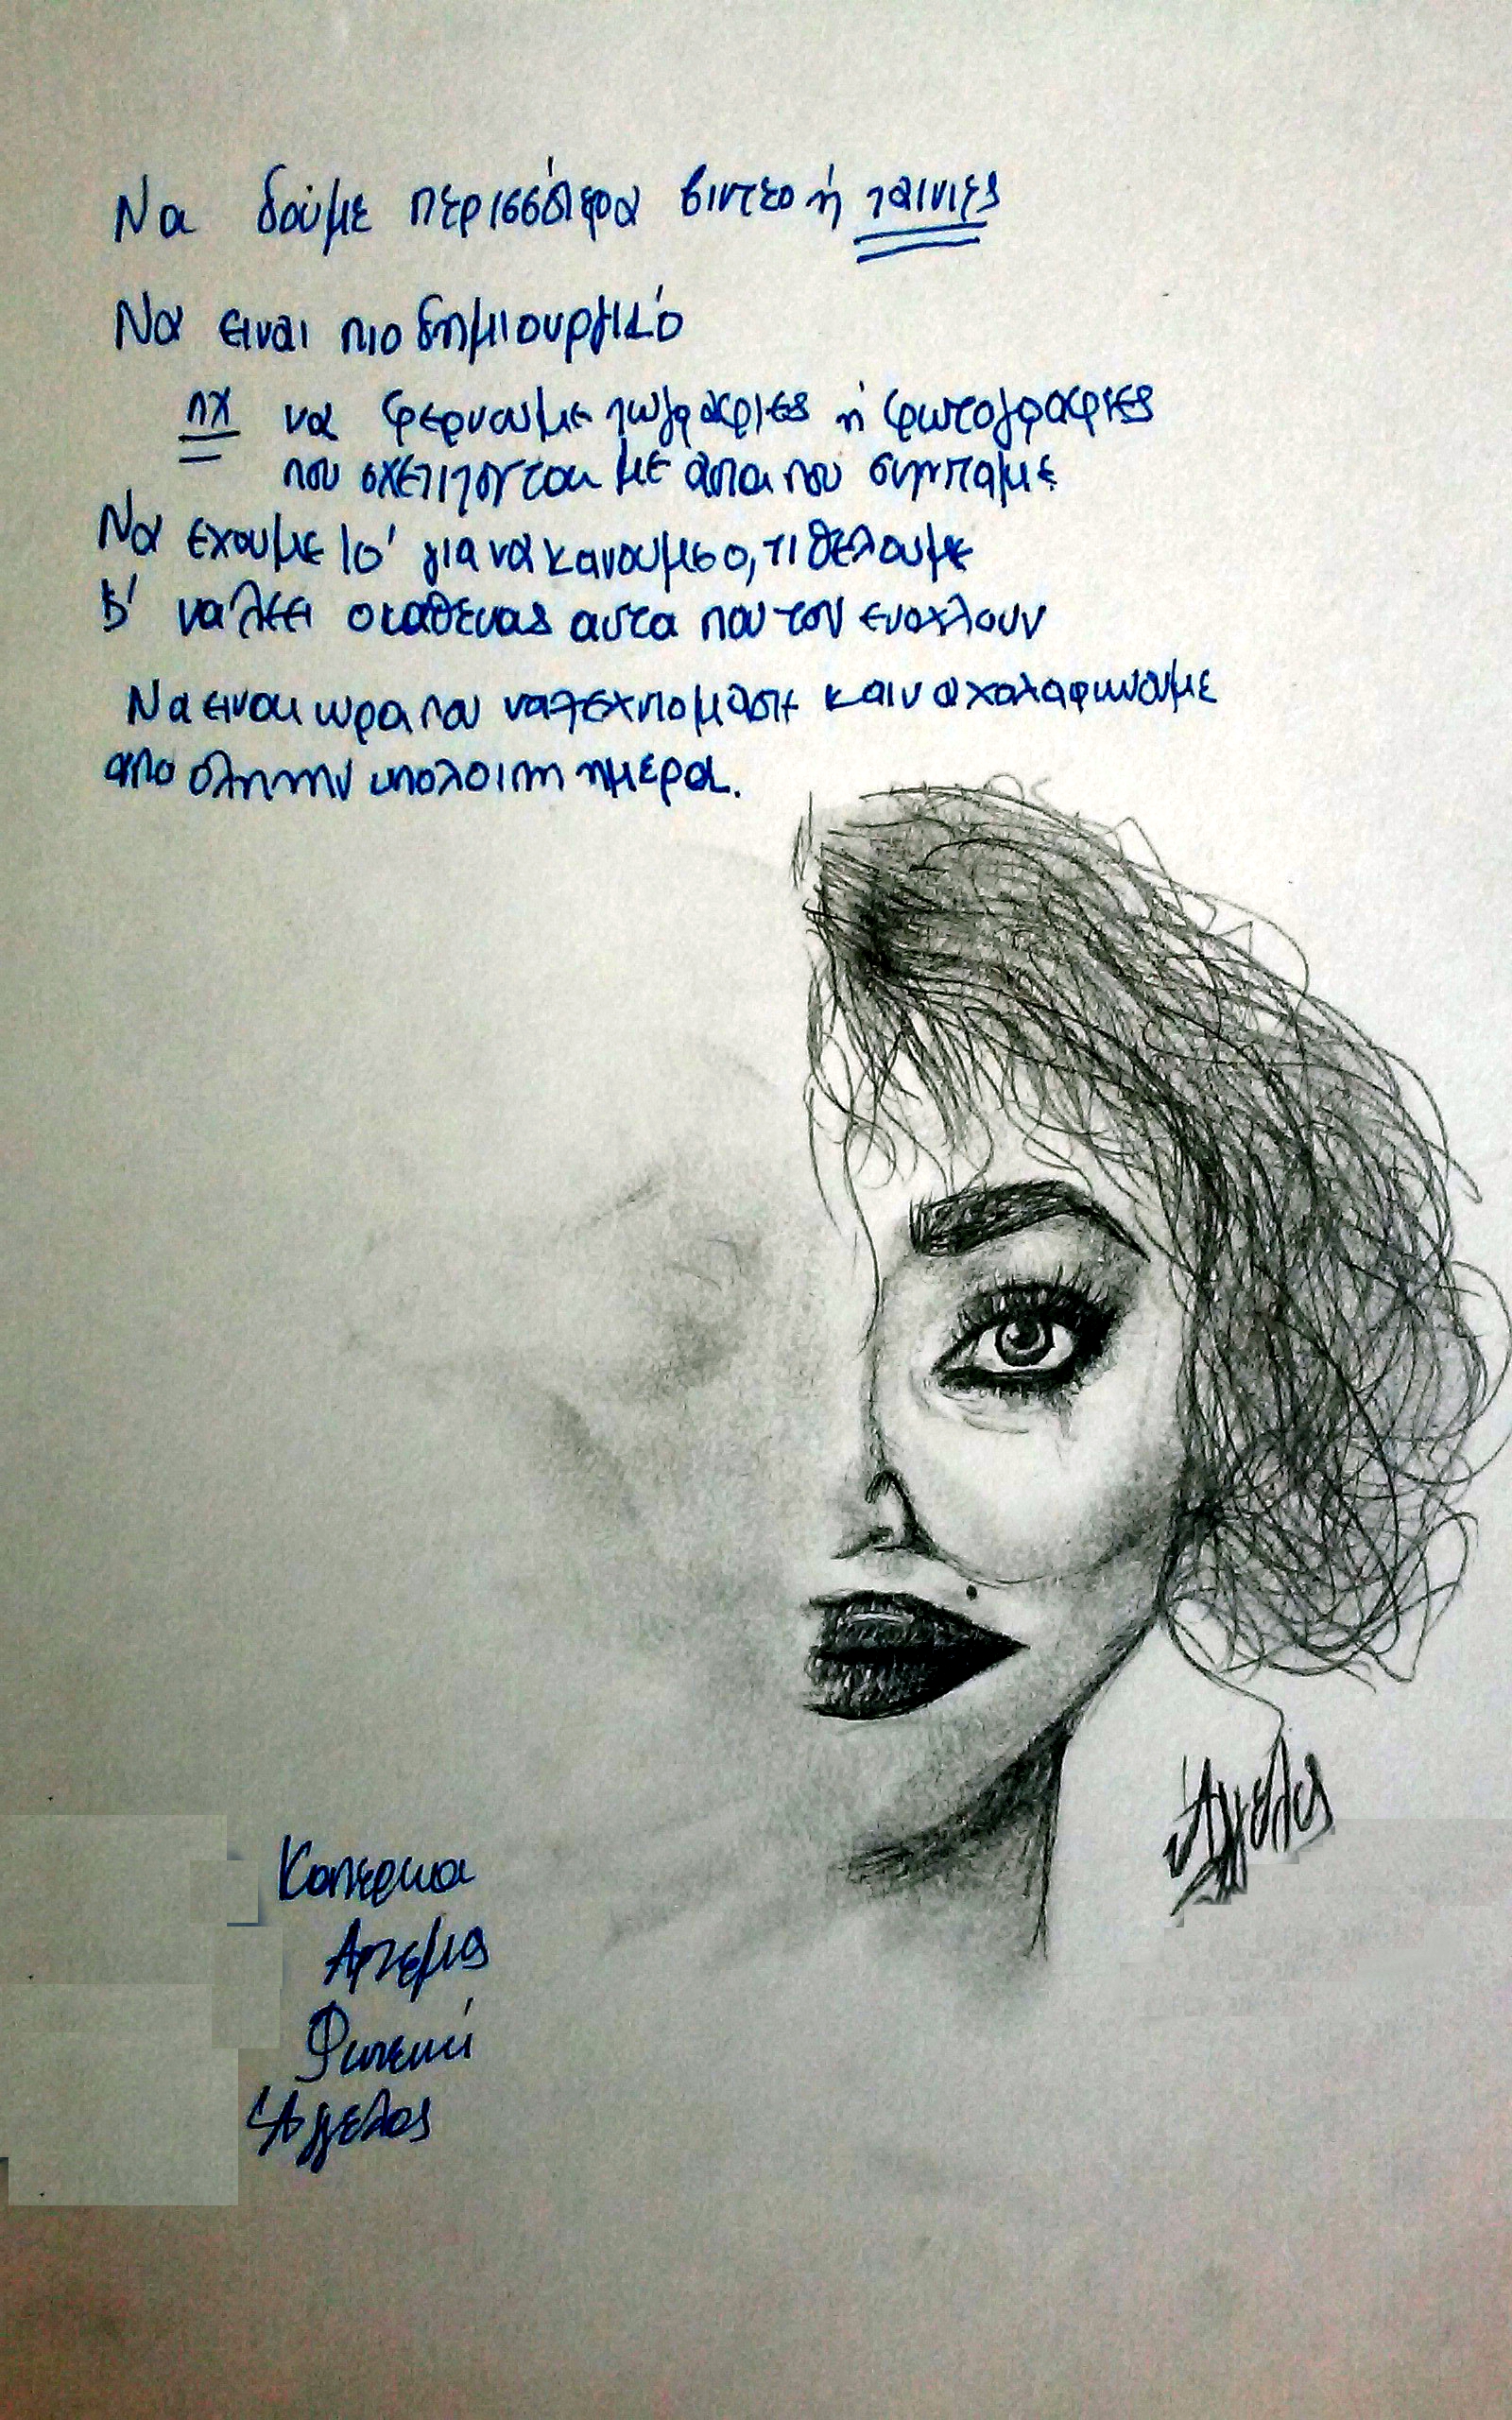 Να δούμε περισσότερα βιντεο ή ταινιες
Να ειναι πιο δημιουργικό
πχ να φερνουμε ζωγραφιες ή φωτογραφιες
που σχετιζονται με αυτα που συζηταμε
Να εχουμε 10' για να κανουμε ο,τι θελουμε
5' να λεει ο καθενας αυτα που τον ενοχλουν
Να ειναι ωρα που να και να χαλαρωνουμε
απο ολη την υπολοιπη ημερα.
Άγγελος
Αρτεμις
Φωτεινή
Άγγελος